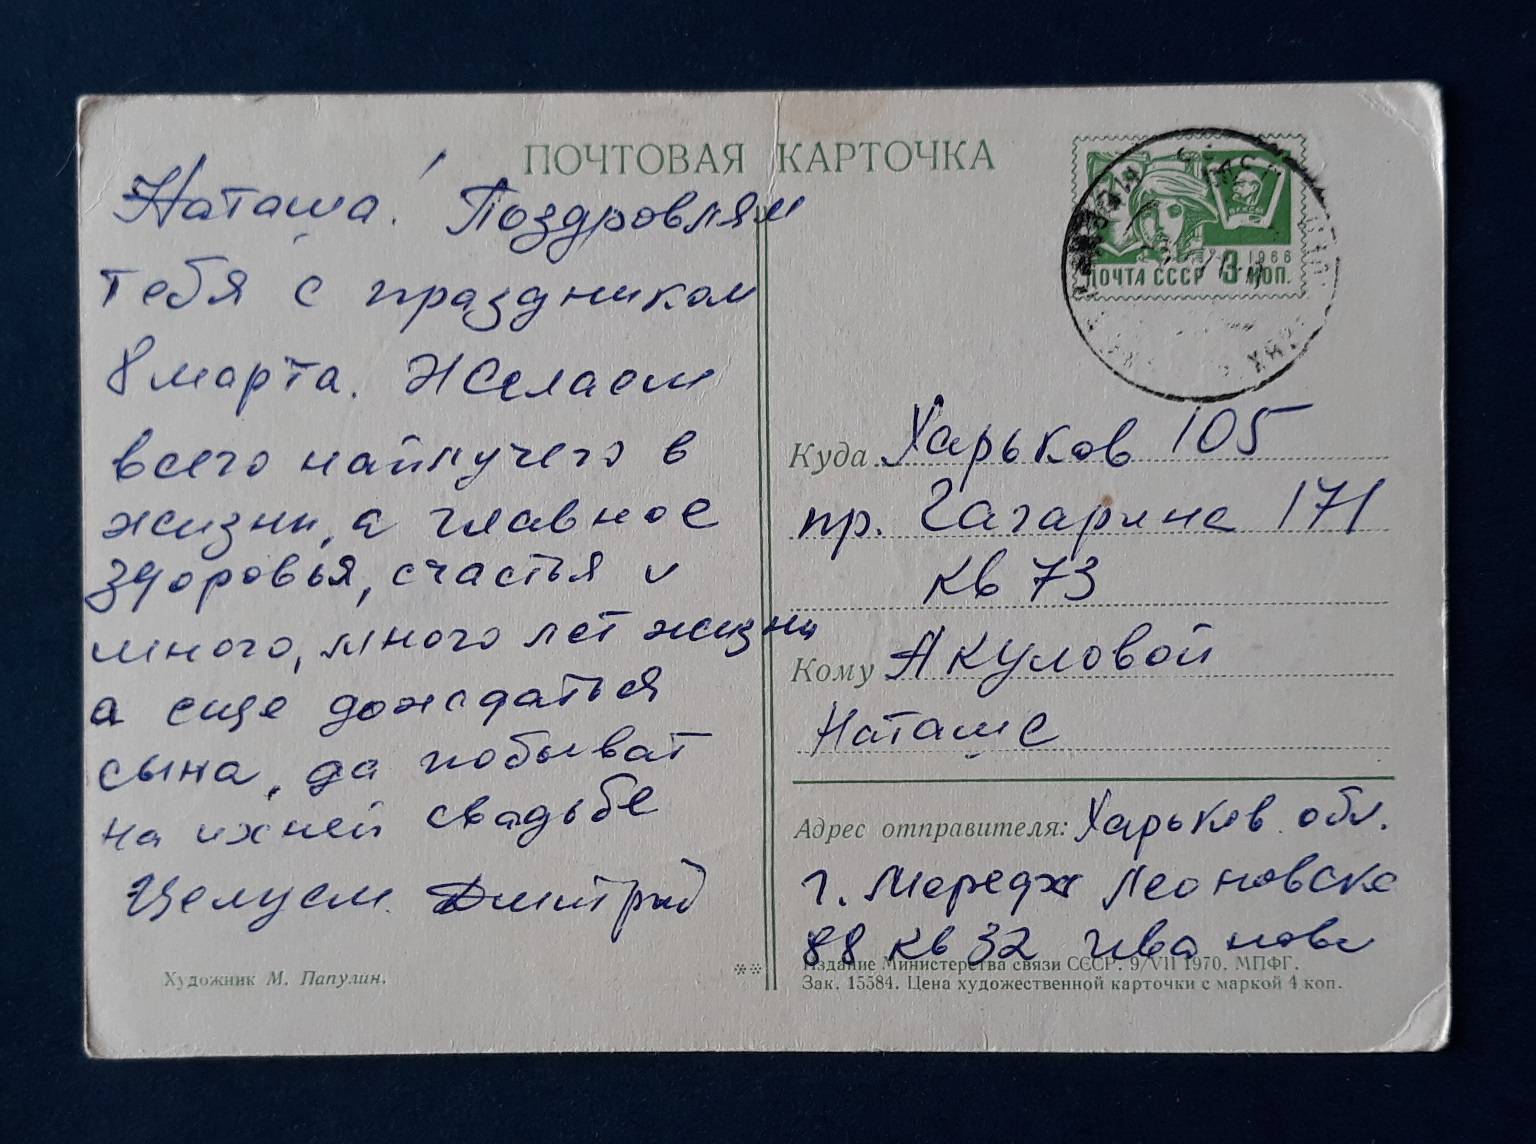 ПОЧТОВАЯ КАРТОЧКА
Наташа! Поздровлям
тебя с праздником
8 марта. Желаем
всего найлучего в
жизни, а главное
здоровья, счастья и
много, много лет жизни
а еще дождаться
сына, да побыват
на ихней свадьбе
Целуем. Дмитрий
Художник М. Папулин.
1966
ПОЧТА СССР 3 КОП.
Куда Харьков 105
пр. Гагарина 171
кв 73
Кому Акуловой
Наташе
Адрес отправителя: Харьков обл.
г. Мереф Леоновская
88 кв 32 Иванова
Издание Министерства связи СССР. 9/VII 1970. МПФГ.
Зак. 15584. Цена художественной карточки с маркой 4 коп.